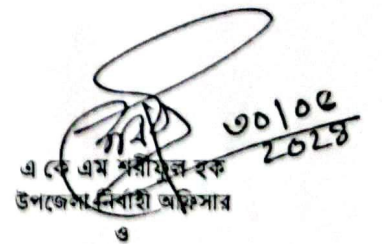 ৩০/০৫
২০২৪
এ কে এম শরীফুল হক
উপজেলা নির্বাহী অফিসার
ও